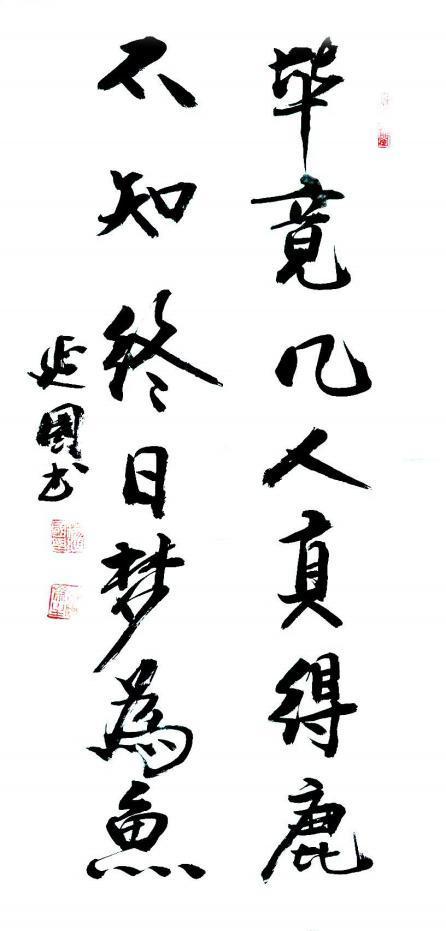 毕竟几人真得鹿
不知终日梦为鱼
延国书